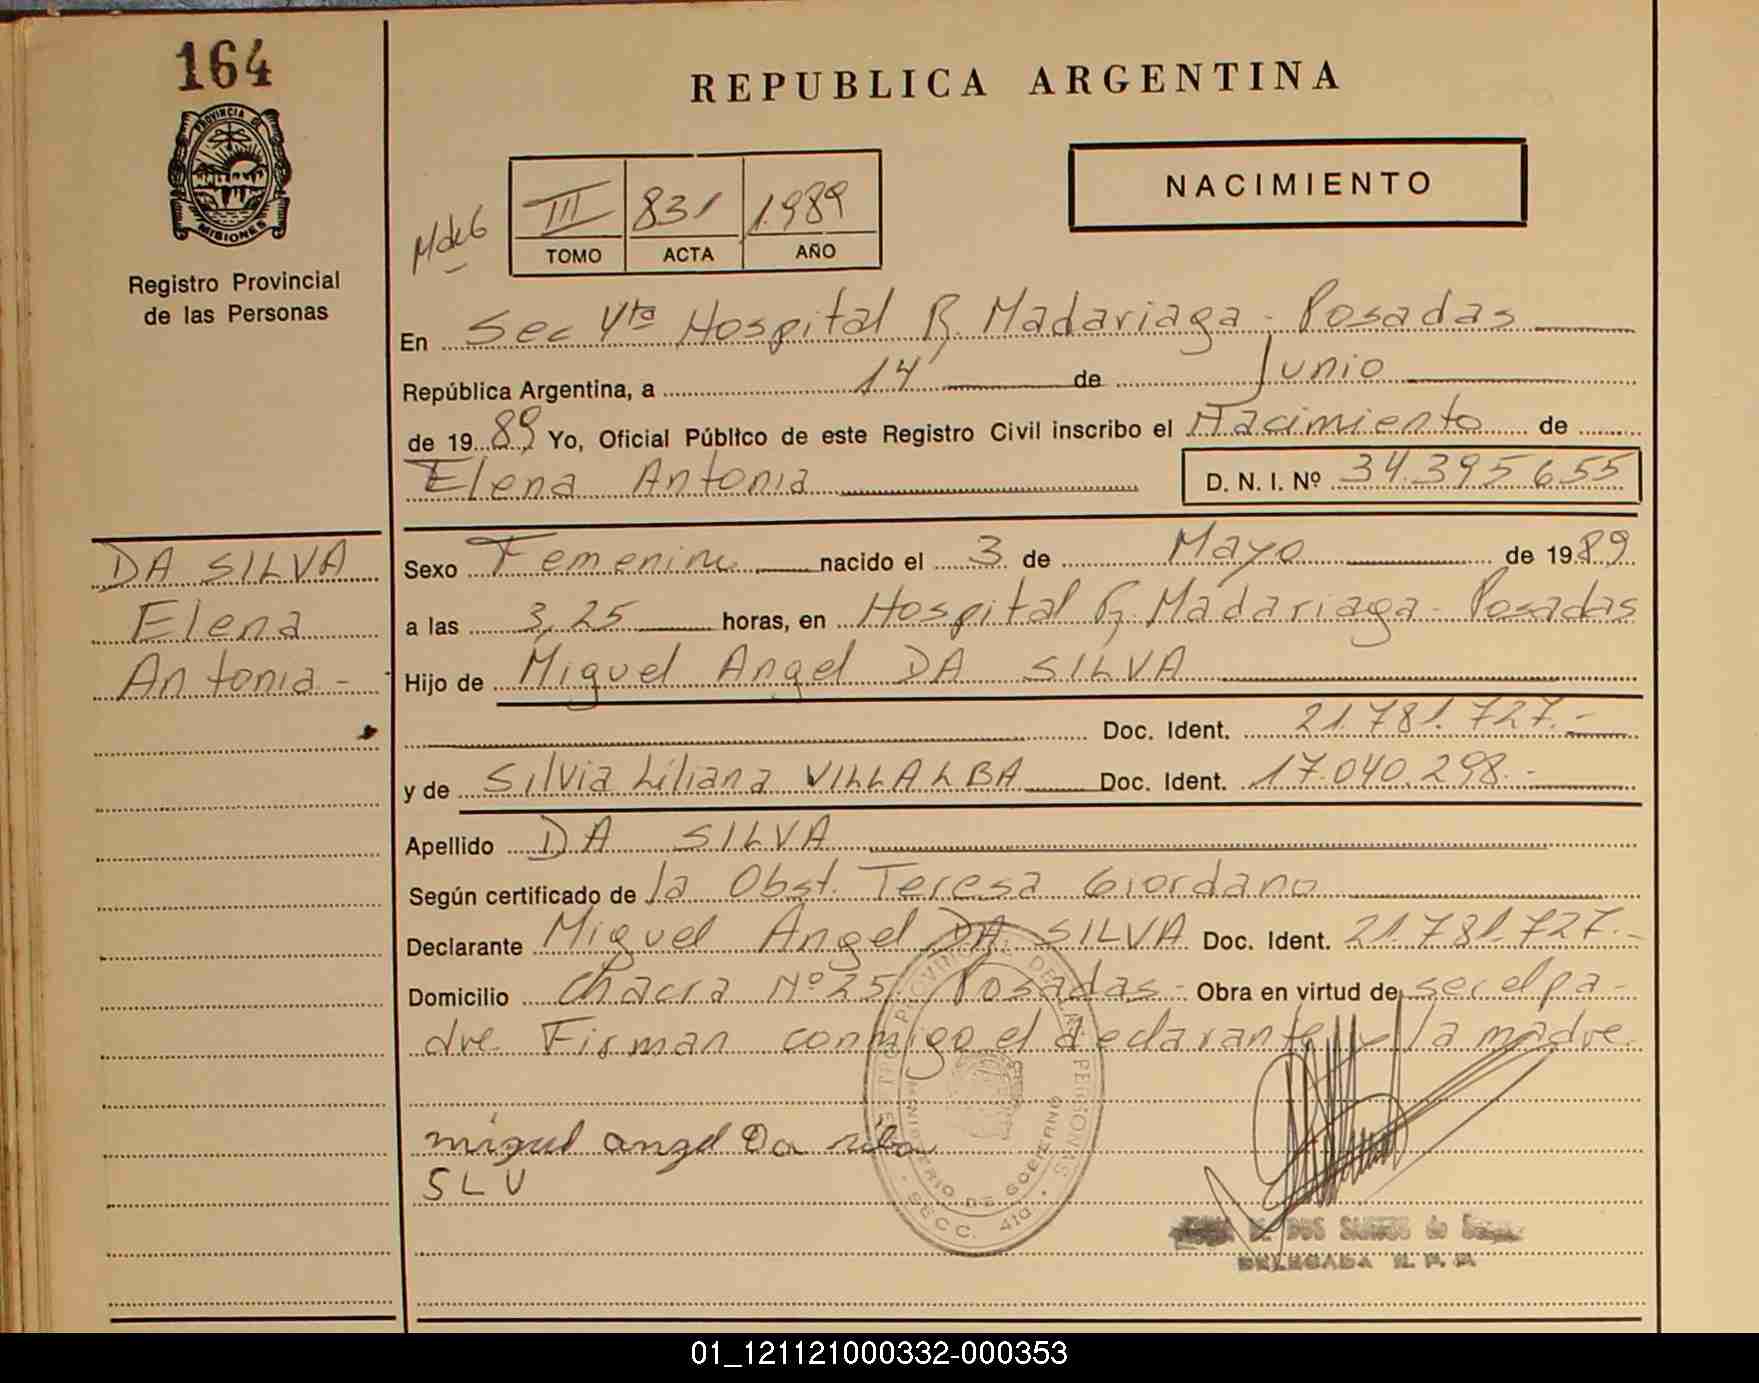 164
PROVINCIA DE
MISIONES
Registro Provincial
de las Personas
REPUBLICA ARGENTINA
NACIMIENTO
III 831 1.989
TOMO ACTA AÑO
En Sec 4ta Hospital R. Madariaga - Posadas
República Argentina, a 14 de Junio
de 1989 Yo, Oficial Público de este Registro Civil inscribo el Nacimiento de
Elena Antonia D. N. I. Nº 34.395.655
DA SILVA
Elena
Antonia -
Sexo Femenino nacido el 3 de Mayo de 1989
a las 3,25 horas, en Hospital R. Madariaga - Posadas
Hijo de Miguel Angel DA SILVA
Doc. Ident. 21.781.727.-
y de Silvia Liliana VILLALBA Doc. Ident. 17.040.298.-
Apellido DA SILVA
Según certificado de la Obst. Teresa Giordano
Declarante Miguel Angel DA SILVA Doc. Ident. 21.781.727.-
Domicilio Chacra Nº 25 Posadas - Obra en virtud de ser el pa-
dre. Firman conmigo el declarante y la madre.
miguel angel Da silva
SLV
REGISTRO PROVINCIAL DE LAS PERSONAS
MINISTERIO DE GOBIERNO
SECC. 4ta
DOS SANTOS de
DELEGADA R. P. P.
01_121121000332-000353